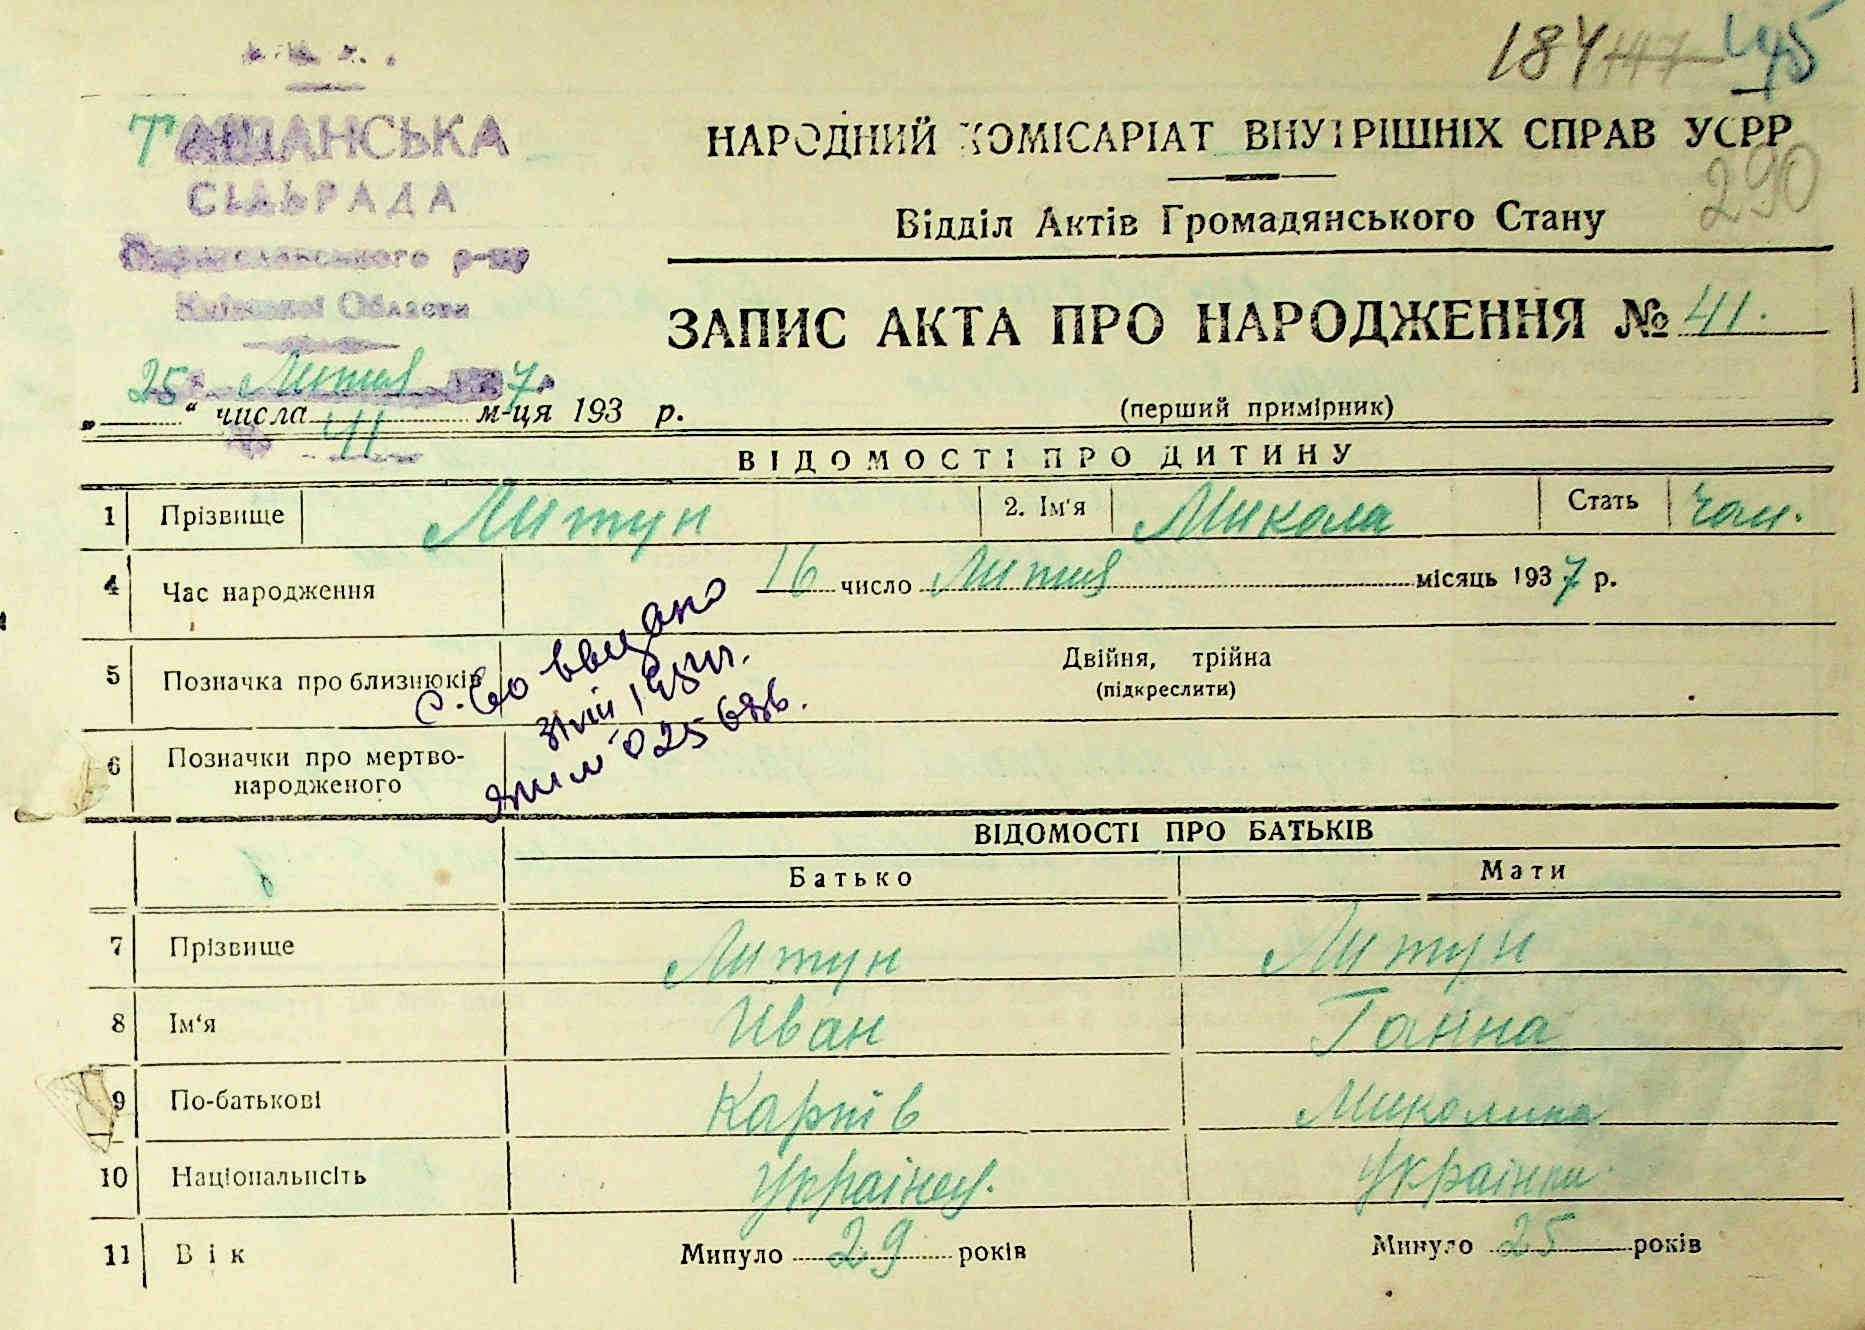 184 117 45
ТАШАНСЬКА
СІЛЬРАДА
Переяславського р-ну
Київської Области
25 Лютия 7
41
НАРОДНИЙ КОМІСАРІАТ ВНУТРІШНІХ СПРАВ УСРР
290
Відділ Актів Громадянського Стану
ЗАПИС АКТА ПРО НАРОДЖЕННЯ № 41.
„ “ числа м-ця 193 р.
(перший примірник)
ВІДОМОСТІ ПРО ДИТИНУ
1 Прізвище Литун 2. Ім'я Микола Стать чол.
4 Час народження 16 число Лютия місяць 1937 р.
5 Позначка про близнюків Двійня, трійна
(підкреслити)
6 Позначки про мертво-
народженого
с-во выдано
025686.
ВІДОМОСТІ ПРО БАТЬКІВ
Батько Мати
7 Прізвище Литун Литун
8 Ім‘я Иван Ганна
9 По-батькові Карпів
10 Національність Українец. Українка
11 Вік Минуло 29 років Минуло 25 років